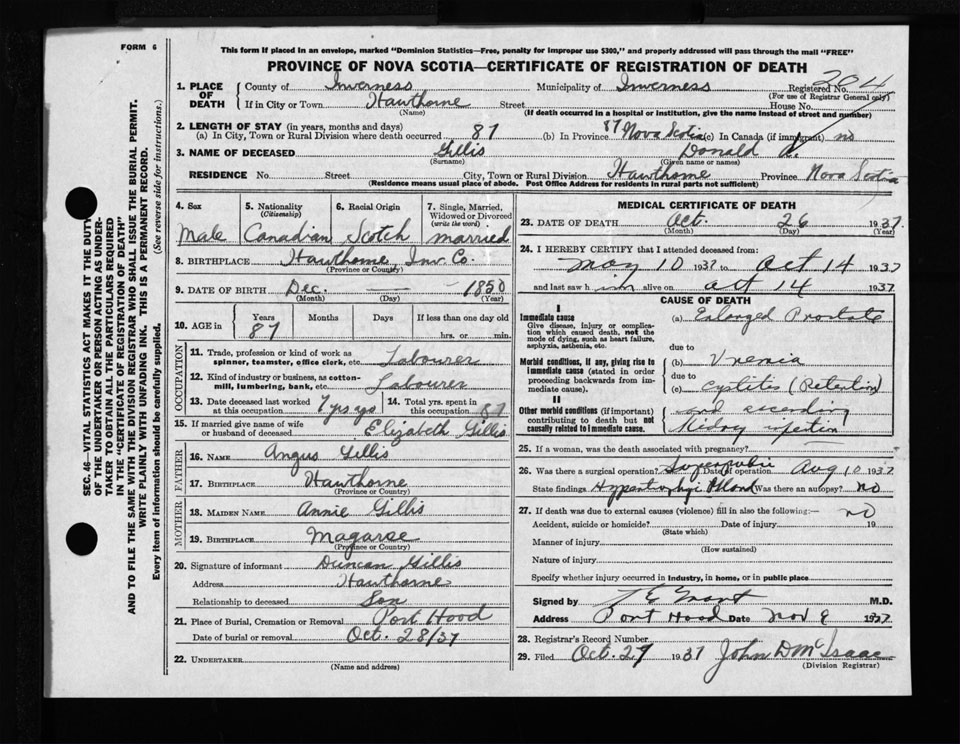 FORM 6
This form if placed in an envelope, marked "Dominion Statistics—Free, penalty for improper use $300," and properly addressed will pass through the mail "FREE"
PROVINCE OF NOVA SCOTIA—CERTIFICATE OF REGISTRATION OF DEATH
SEC. 46—VITAL STATISTICS ACT MAKES IT THE DUTY OF THE UNDERTAKER OR PERSON ACTING AS UNDERTAKER TO OBTAIN ALL THE PARTICULARS REQUIRED IN THE "CERTIFICATE OF REGISTRATION OF DEATH"
AND TO FILE THE SAME WITH THE DIVISION REGISTRAR WHO SHALL ISSUE THE BURIAL PERMIT.
WRITE PLAINLY WITH UNFADING INK. THIS IS A PERMANENT RECORD.
Every item of information should be carefully supplied. (See reverse side for instructions.)
1. PLACE OF DEATH County of Inverness Municipality of Inverness Registered No. 2011
(For use of Registrar General only)
If in City or Town Hawthorne Street House No.
(Name) (If death occurred in a hospital or institution, give the name instead of street and number)
2. LENGTH OF STAY (in years, months and days)
(a) In City, Town or Rural Division where death occurred 87 (b) In Province 87 Nova Scotia (c) In Canada (if immigrant) no
3. NAME OF DECEASED Gillis Donald A.
(Surname) (Given name or names)
RESIDENCE No. Street City, Town or Rural Division Hawthorne Province Nova Scotia
(Residence means usual place of abode. Post Office Address for residents in rural parts not sufficient)
4. Sex 5. Nationality (Citizenship) 6. Racial Origin 7. Single, Married, Widowed or Divorced (write the word)
Male Canadian Scotch married
8. BIRTHPLACE Hawthorne Inv. Co.
(Province or County)
9. DATE OF BIRTH Dec. — 1850
(Month) (Day) (Year)
10. AGE in Years Months Days If less than one day old
87 hrs. or min.
OCCUPATION
11. Trade, profession or kind of work as spinner, teamster, office clerk, etc. Labourer
12. Kind of industry or business, as cotton-mill, lumbering, bank, etc. Labourer
13. Date deceased last worked at this occupation 7 yrs ago 14. Total yrs. spent in this occupation 87
15. If married give name of wife or husband of deceased Elizabeth Gillis
FATHER
16. NAME Angus Gillis
17. BIRTHPLACE Hawthorne
(Province or County)
MOTHER
18. MAIDEN NAME Annie Gillis
19. BIRTHPLACE Magaree
(Province or County)
20. Signature of informant Duncan Gillis
Address Hawthorne
Relationship to deceased Son
21. Place of Burial, Cremation or Removal Port Hood
Date of burial or removal Oct. 28/37
22. UNDERTAKER
(Name and address)
MEDICAL CERTIFICATE OF DEATH
23. DATE OF DEATH Oct. 26 1937
(Month) (Day) (Year)
24. I HEREBY CERTIFY that I attended deceased from:
May 10 1937 to Oct 14 1937
and last saw him alive on Oct 14 1937
CAUSE OF DEATH
I
Immediate cause
Give disease, injury or complication which caused death, not the mode of dying, such as heart failure, asphyxia, asthenia, etc.
(a) Enlarged Prostate
due to
Morbid conditions, if any, giving rise to immediate cause (stated in order proceeding backwards from immediate cause).
(b) Uremia
due to
(c) Cystites (Retention)
II
Other morbid conditions (if important) contributing to death but not causally related to immediate cause.
and ascending
infection
25. If a woman, was the death associated with pregnancy?
26. Was there a surgical operation? Date of operation Aug 10 1937
State findings Was there an autopsy? no
27. If death was due to external causes (violence) fill in also the following:— no
Accident, suicide or homicide? Date of injury 19
(State which)
Manner of injury
(How sustained)
Nature of injury
Specify whether injury occurred in industry, in home, or in public place
Signed by T E Grant M.D.
Address Port Hood Date Nov 9 1937
28. Registrar's Record Number
29. Filed Oct. 27 1937 John D McIsaac
(Division Registrar)